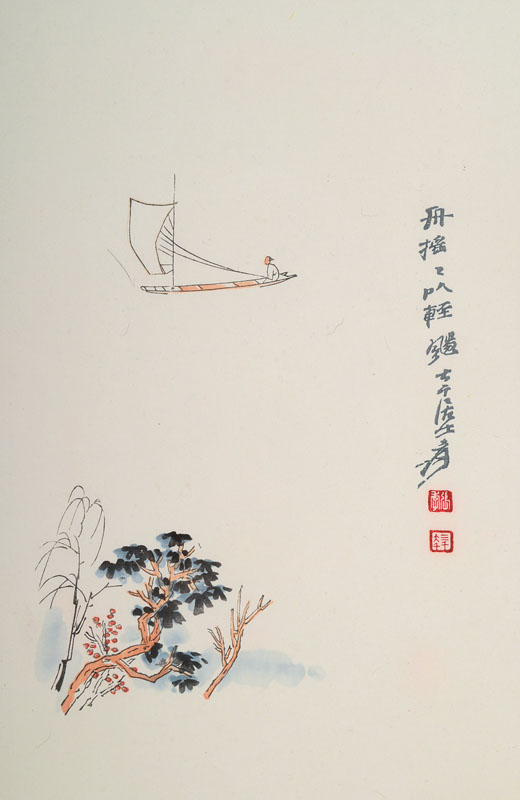 舟搖〻以輕颺大千居士爰